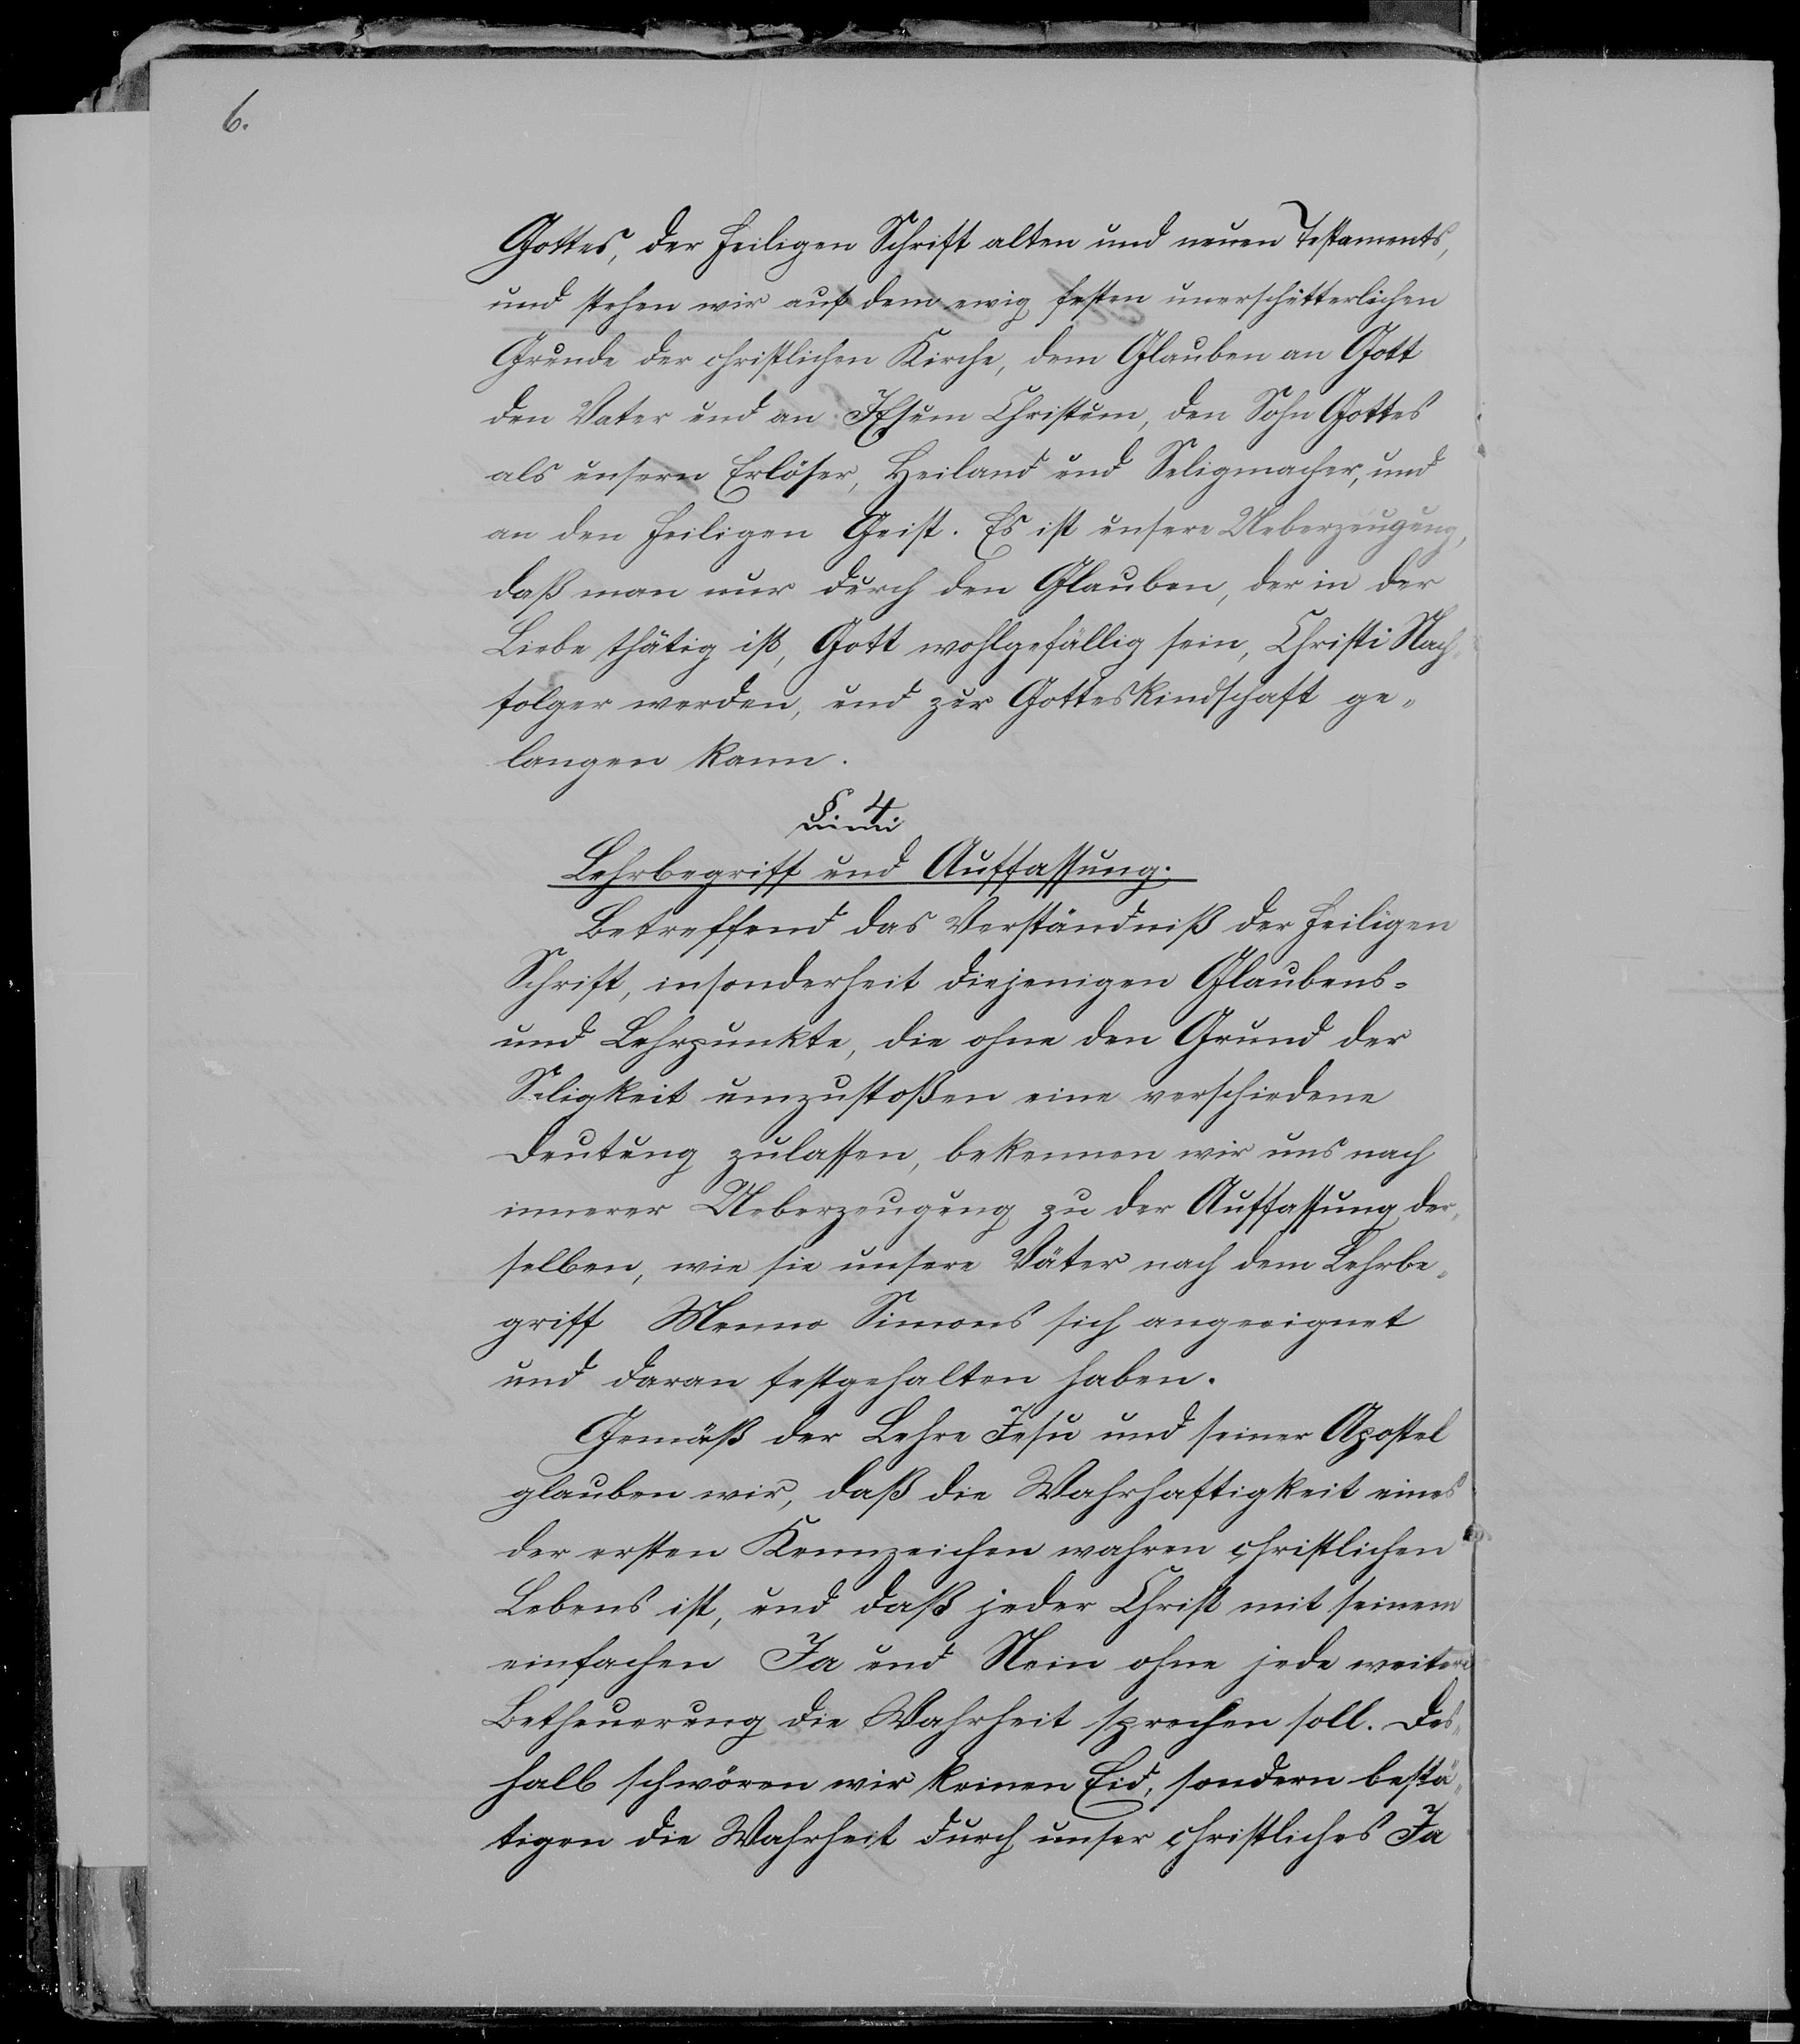 6.
Gottes, der heiligen Schrift alten und neuen Testaments,
und stehen wir auf dem ewig festen unerschütterlichen
Grunde der christlichen Kirche, dem Glauben an Gott
den Vater und an Jesum Christum, den Sohn Gottes
als unsern Erlöser, Heiland und Seligmacher, und
an den heiligen Geist. Es ist unsere Ueberzeugung,
daß man nur durch den Glauben, der in der
Liebe thätig ist, Gott wohlgefällig sein, Christi Nach-
folger werden, und zur Gotteskindschaft ge-
langen kann.
§ 4
Lehrbegriff und Auffassung.
Betreffend das Verständniß der heiligen
Schrift, insonderheit diejenigen Glaubens-
und Lehrpunkte, die ohne den Grund der
Seligkeit umzustoßen eine verschiedene
Deutung zulassen, bekennen wir uns nach
innerer Ueberzeugung zu der Auffassung der-
selben, wie sie unsere Väter nach dem Lehrbe-
griff Menno Simons sich angeeignet
und daran festgehalten haben.
Gemäß der Lehre Jesu und seiner Apostel
glauben wir, daß die Wahrhaftigkeit eines
der ersten Kennzeichen wahren christlichen
Lebens ist, und daß jeder Christ mit seinem
einfachen Ja und Nein ohne jede weitere
Betheuerung die Wahrheit sprechen soll. Des-
halb schwören wir keinen Eid, sondern bestä-
tigen die Wahrheit durch unser christliches Ja